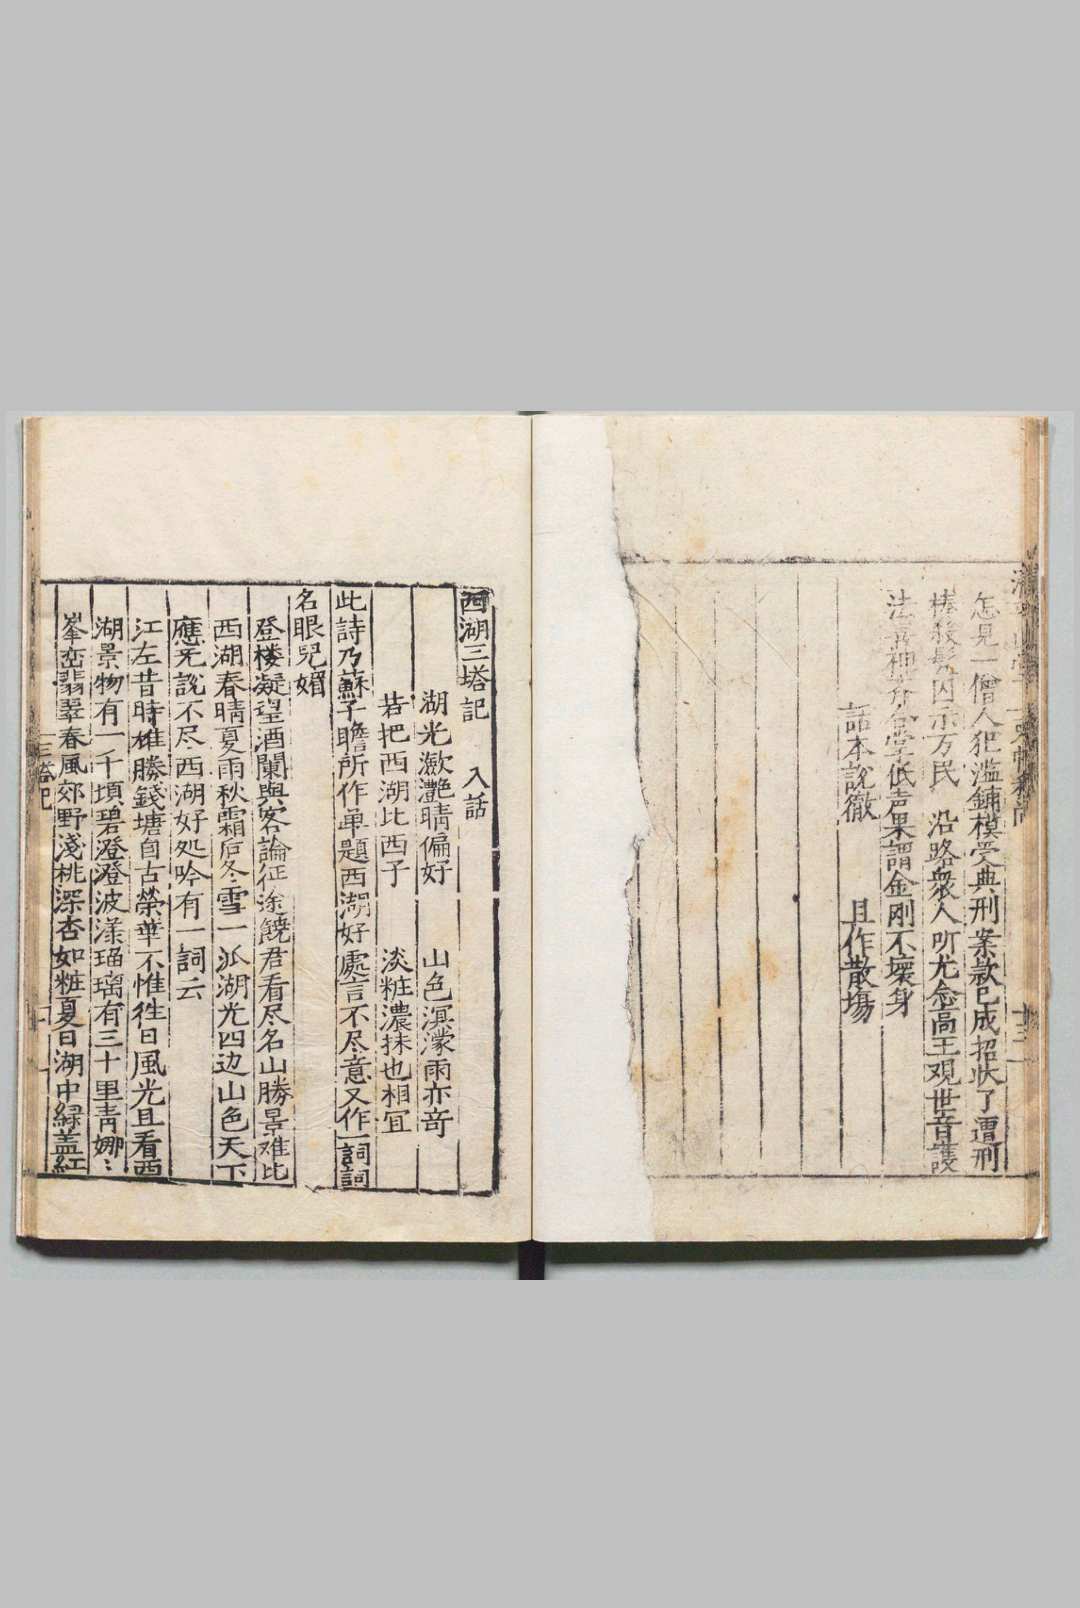 怎見一僧人犯滥鋪模受典刑案款已成招狀了遭刑
棒殺髡囚示万民 沿路衆人听尤念高王观世音護
法 低声果謂金刚不壞身
話本說徹 且作散塲
西湖三塔記 入話
湖光瀲灧晴偏好 山色溟濛雨亦竒
若把西湖比西子 淡粧濃抹也相冝
此詩乃蘇子瞻所作单題西湖好處言不尽意又作一詞詞
名眼兒媚
登楼凝望酒闌與客論征途饒君看尽名山勝景难比
西湖春晴夏雨秋霜后冬雪一派湖光四边山色天下
應无說不尽西湖好処吟有一詞云
江左昔時雄勝錢塘自古榮華不惟徃日風光且看西
湖景物有一千頃碧澄澄波漾瑠璃有三十里青娜〻
峯峦翡翠春風郊野淺桃深杏如粧夏日湖中緑盖紅
三塔記